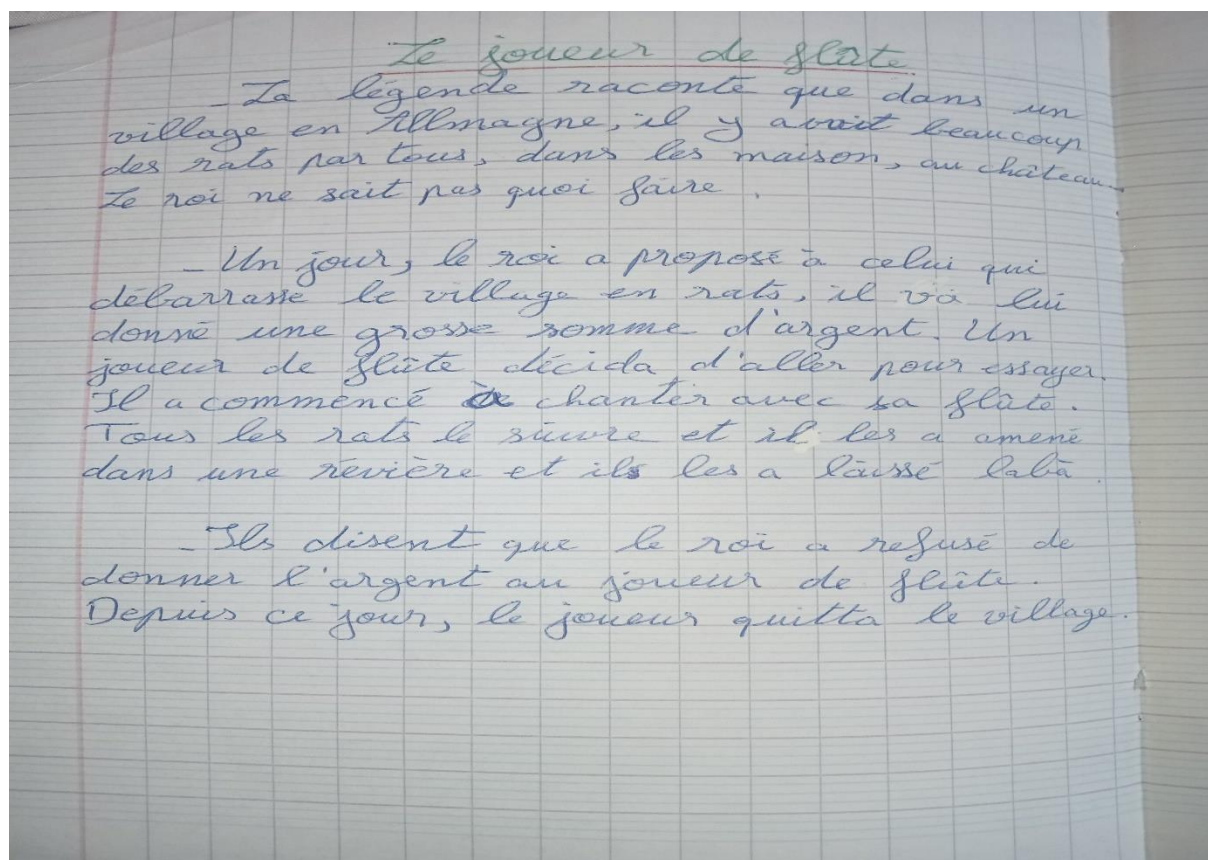 Le joueur de flûte
- La légende raconte que dans un
village en Allmagne, il y avait beaucoup
des rats par tous, dans les maison, au château...
Le roi ne sait pas quoi faire.
- Un jour, le roi a proposé à celui qui
débarrasse le village en rats, il va lui
donné une grosse somme d'argent. Un
joueur de flûte décida d'aller pour essayer.
Il a commencé à chanter avec sa flûte.
Tous les rats le suivre et il les a amené
dans une revière et ils les a laissé labà.
- Ils disent que le roi a refusé de
donner l'argent au joueur de flûte.
Depuis ce jour, le joueur quitta le village.